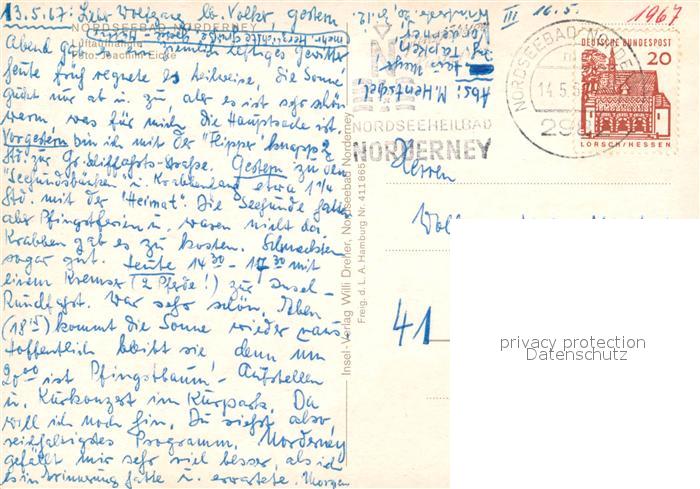 13.5.67: Lieber Wolfgang, lb. Volker, gestern
NORDSEEBAD NORDERNEY
Abend
ziemlich heftiges Gewitter
Luftaufnahme
Foto: Joachim Eicke
heute früh regnete es teilweise, die Sonne
guckt nur ab u. zu, aber es ist sehr schön
warm, was für mich die Hauptsache ist.
Vorgestern bin ich mit der "Flipper" knapp 2
Std. zur Gr. Schiffahrts-Straße. Gestern zu den
"Seehundsbänken u. Krabbenfang etwa 1 1/4
Std. mit der "Heimat". Die Seehunde hatten
aber Pfingstferien u. waren nicht da.
Krabben gab es zu kosten. Schmeckten
sogar gut. Heute 14³⁰ - 17³⁰ mit
einem Kremser (2 Pferde!) zur Insel-
Rundfahrt. War sehr schön. Eben
(18¹⁵) kommt die Sonne wieder raus
Hoffentlich bleibt sie denn um
20⁰⁰ ist Pfingstbaum-Aufstellen
u. Kurkonzert im Kurpark. Da
will ich noch hin. Du siehst also,
reichhaltigstes Programm. Norderney
gefällt mir sehr viel besser, als ich
es in Erinnerung hatte u. erwartete. Morgen
Insel-Verlag Willi Dreher, Nordseebad Norderney
Freig. d. L. A. Hamburg Nr. 411865
Abs: M. Hentschel,
Norderney
NORDSEEHEILBAD
NORDERNEY
III 16.5. 1967
NORDSEEBAD NORDERNEY
14.5.67
298
DEUTSCHE BUNDESPOST
20
LORSCH/HESSEN
Herren
41
privacy protection
Datenschutz